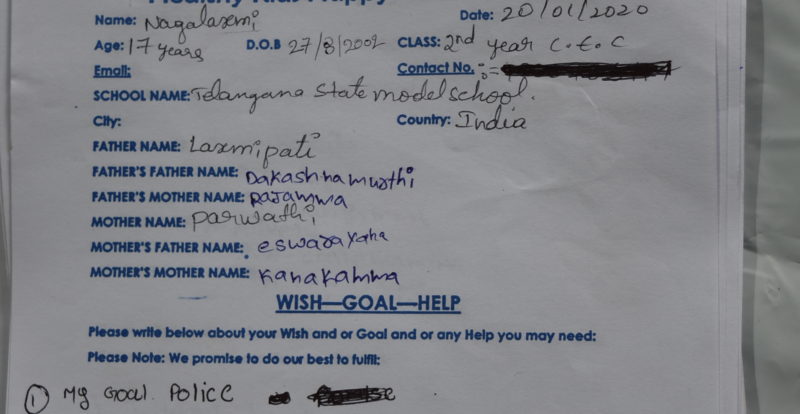 Name: Nagalaxmi Date: 20/01/2020
Age: 17 years D.O.B 27/8/2002 CLASS: 2nd year C.E.C
Email: Contact No.
SCHOOL NAME: Telangana State model school.
City: Country: India
FATHER NAME: Laxmipati
FATHER'S FATHER NAME: Dakashnamurthi
FATHER'S MOTHER NAME: Rajamma
MOTHER NAME: Parwathi
MOTHER'S FATHER NAME:
MOTHER'S MOTHER NAME: Kanakamma
WISH—GOAL—HELP
Please write below about your Wish and or Goal and or any Help you may need:
Please Note: We promise to do our best to fulfil:
① My Goal Police